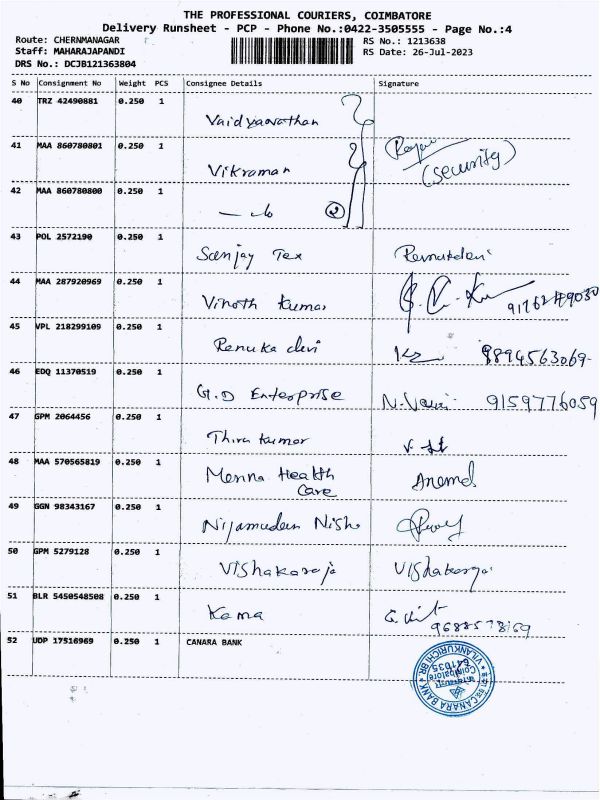 THE PROFESSIONAL COURIERS, COIMBATORE
Delivery Runsheet - PCP - Phone No.:0422-3505555 - Page No.:4
Route: CHERNMANAGAR
RS No.: 1213638
Staff: MAHARAJAPANDI
RS Date: 26-Jul-2023
DRS No.: DCJB121363804
S No Consignment No Weight PCS Consignee Details Signature
40 TRZ 42490881 0.250 1
Vaidyanathan
41 MAA 860780801 0.250 1
Vikraman
(Security)
42 MAA 860780800 0.250 1
②
43 POL 2572190 0.250 1
Sanjay Tex
44 MAA 287920969 0.250 1
Vinoth Kumar
45 VPL 218299109 0.250 1
Renuka devi 9894563069
46 EDQ 11370519 0.250 1
G.D Enterprise 9159776059
47 GPM 2064456 0.250 1
Thirukumar
48 MAA 570565819 0.250 1
Menna Health
Care
49 GGN 98343167 0.250 1
Nijamudeen
50 GPM 5279128 0.250 1
Vishakaraja
51 BLR 5450548508 0.250 1
Kama
52 UDP 17516969 0.250 1 CANARA BANK
CANARA BANK
VILANKURICHI BR.
Coimbatore
641035